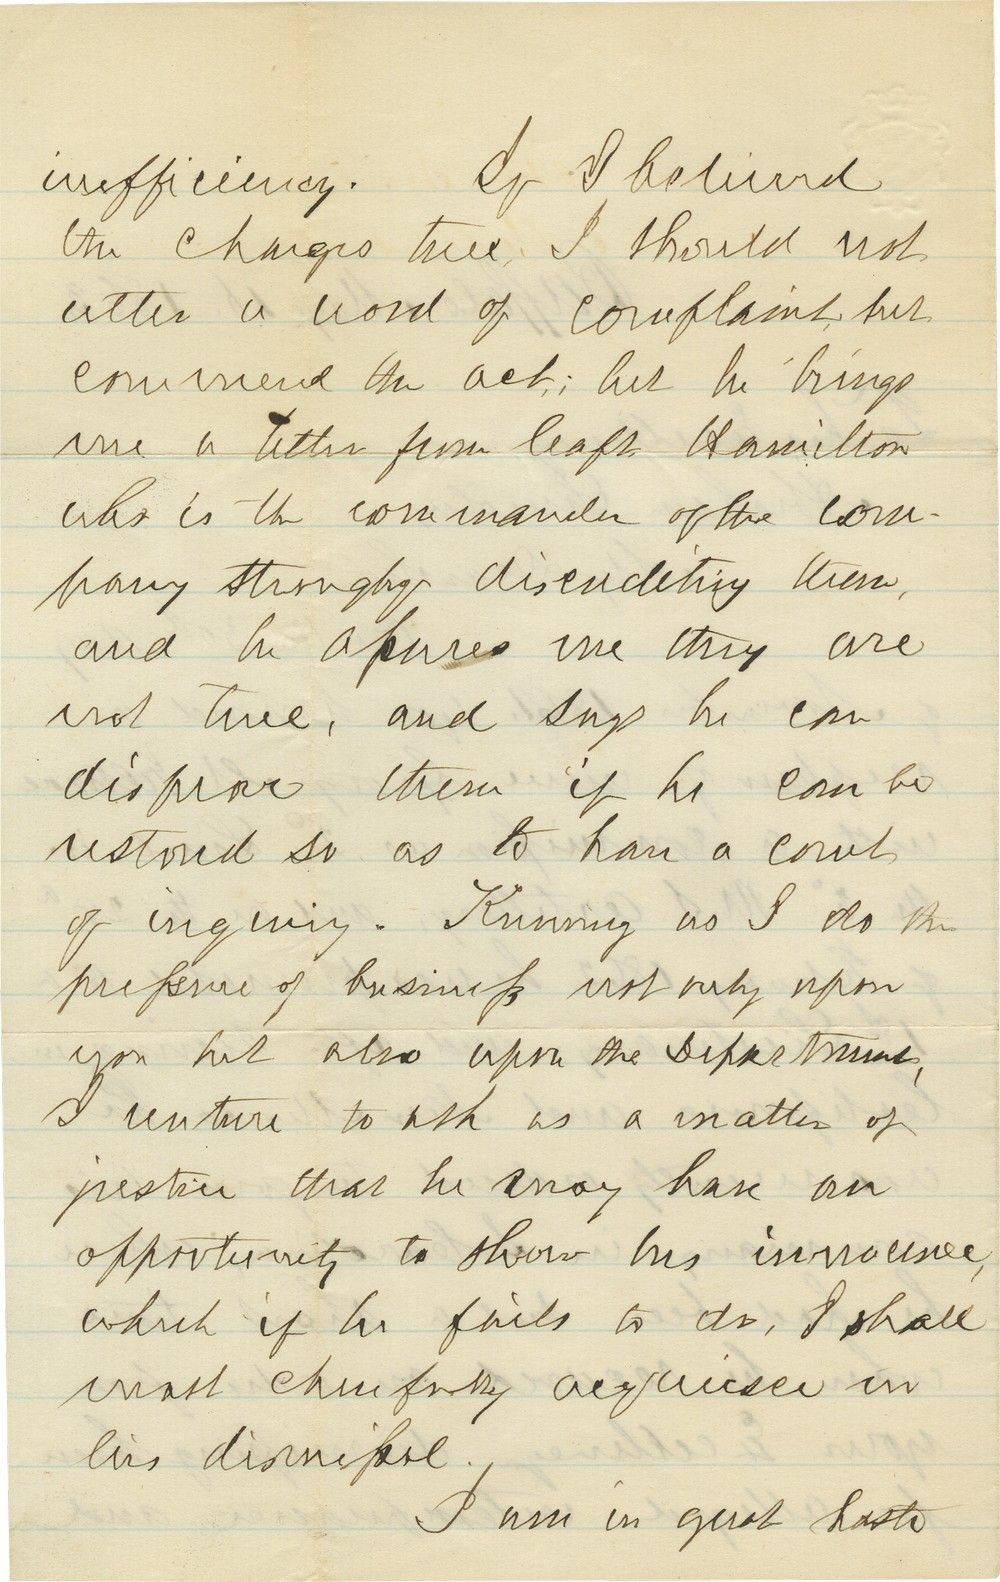 inefficiency. If I believed
the charges true, I should not
utter a word of complaint, but
commend the act; but he brings
me a letter from Capt. Hamilton
who is the commander of the com-
pany strongly discrediting them,
and he assures me they are
not true, and says he can
disprove them if he can be
restored so as to have a court
of inquiry. Knowing as I do the
pressure of business not only upon
you but also upon the Department,
I venture to ask as a matter of
justice that he may have an
opportunity to show his innocence,
which if he fails to do, I shall
most cheerfully acquiesce in
his dismissal.
I am in great haste